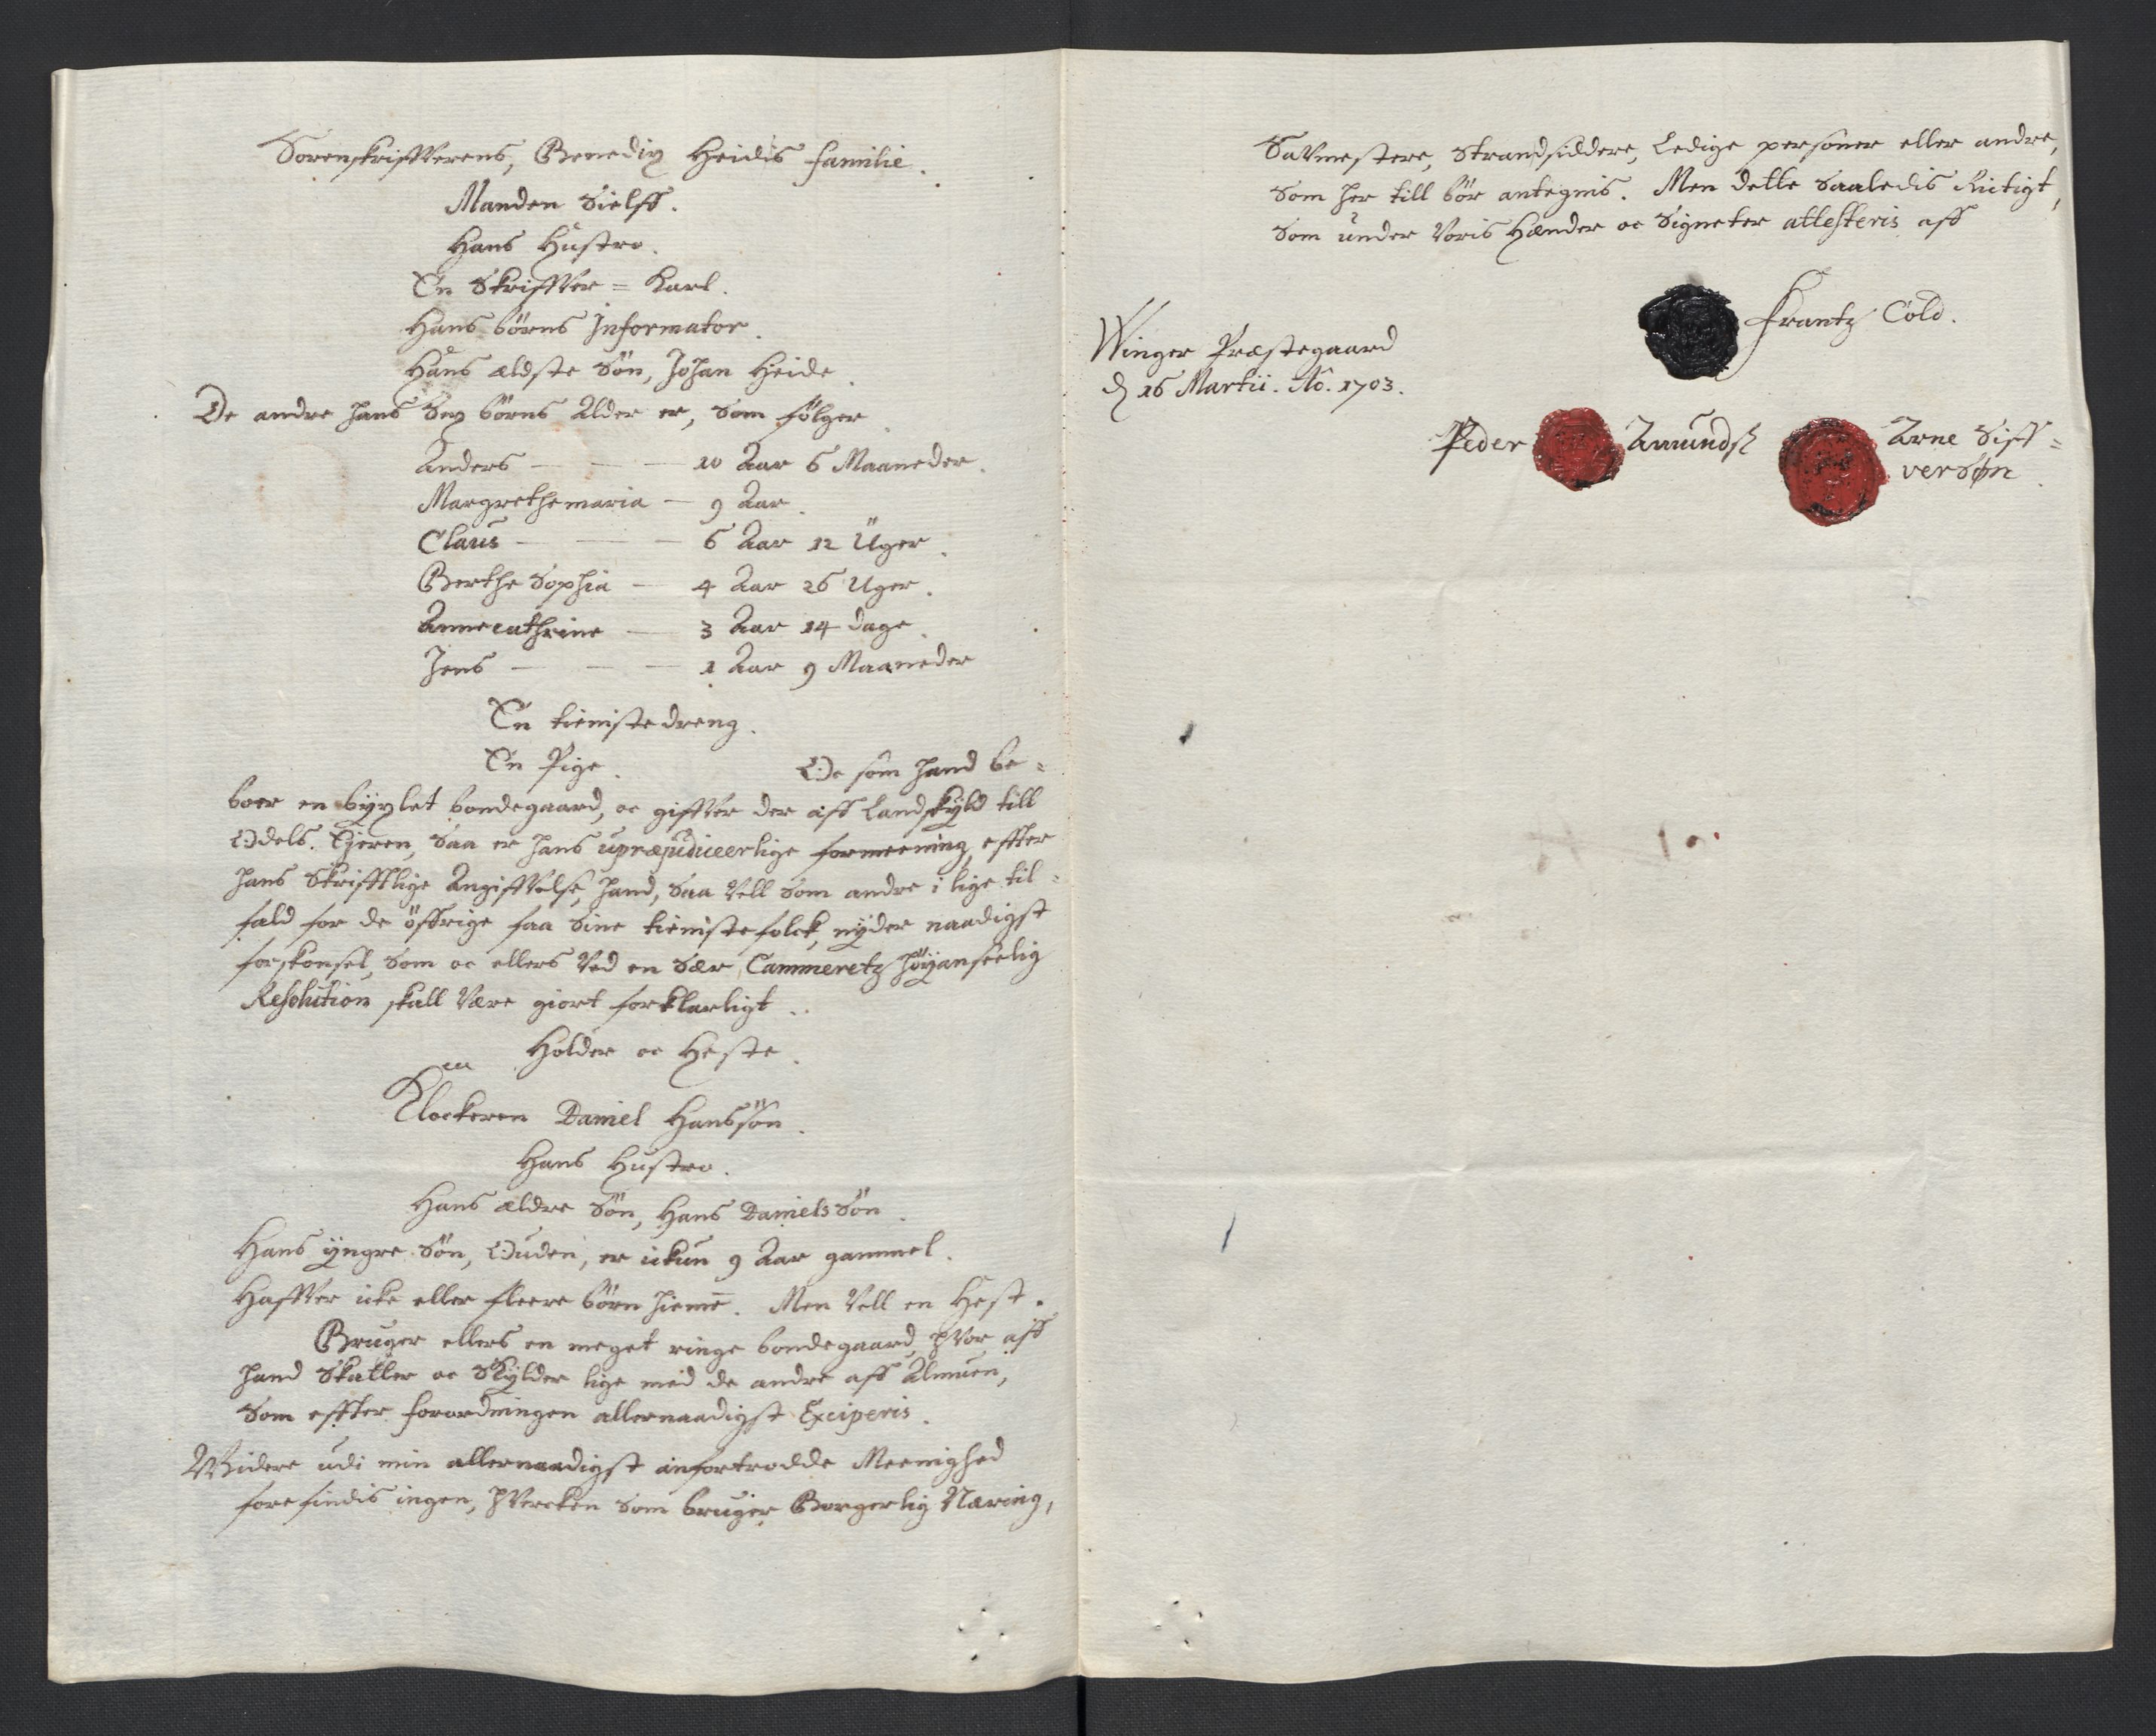 Sorenskriffverens, Benedix Heidis familie.
Manden Sielff.
Hans Hustro.
En Skriffver = Karl.
Hans börns Informator.
Hans ældste Sön, Johan Heide.
De andre hans Sex börns Alder er, Som fölger.
Anders — — — 10 Aar 6 Maaneder.
Margrethemaria — 9 Aar.
Claus — — — 6 Aar 12 Uger.
Berthe Sophia — 4 Aar 26 Uger.
Annecathrine — 3 Aar 14 dage.
Jens — — — 1 Aar 9 Maaneder
En tieniste dreng.
En Pige.
Og som hand be=
boer en byxlet bondegaard, oc giffver der aff Landskyld till
Odels. Ejeren, Saa er hans upræjudiceerlige formeening, effter
hans Skrifftlige Angiffvelse, hand, Saa Vell Som andre i lige til=
fald for de öffrige faa Sine tienistefolck, nyder naadigst
forskonsel, Som oc ellers Ved en Sær Cammeretz höyanseelig
Resolution skall Være giort forklarligt.
Holder oc Heste.
Klockeren Daniel Hanssön.
Hans Hustro.
Hans ældre Sön, Hans DanielsSön.
Hans yngre Sön, Ouden, er ickun 9 Aar gammel.
Haffver icke eller fleere börn hieme. Men Vell en Hest.
Bruger ellers en meget ringe bondegaard, hVor aff
hand Skatter oc Skylder lige med de andre aff Almuen,
Som effter forordningen allernaadigst Exciperis.
Widere udi min allernaadigst anfortrodde Meenighed
forefindis ingen, hVercken Som bruger Borgerlig Næring,
SaVmestere, Strandsiddere, Ledige personer eller andre,
Som her till bör antegnis. Men dette Saaledis Rictigt,
Som under Voris Hænder oc Signeter attesteris aff
Frantz Cold.
Winger Præstegaard
d 16 Martii. Ao. 1703.
Peder Amunds
Arne Siff=
verSøn